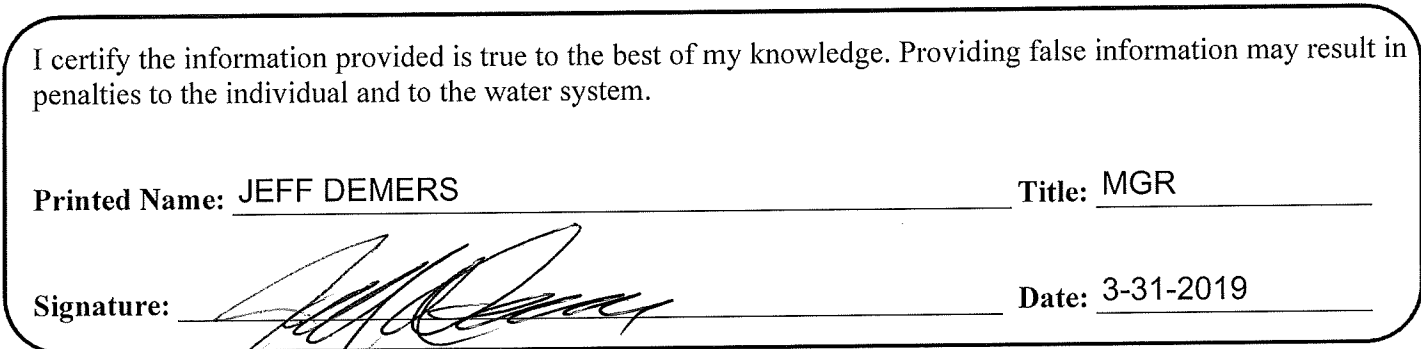 I certify the information provided is true to the best of my knowledge. Providing false information may result in
penalties to the individual and to the water system.
Printed Name: JEFF DEMERS Title: MGR
Signature: Date: 3-31-2019